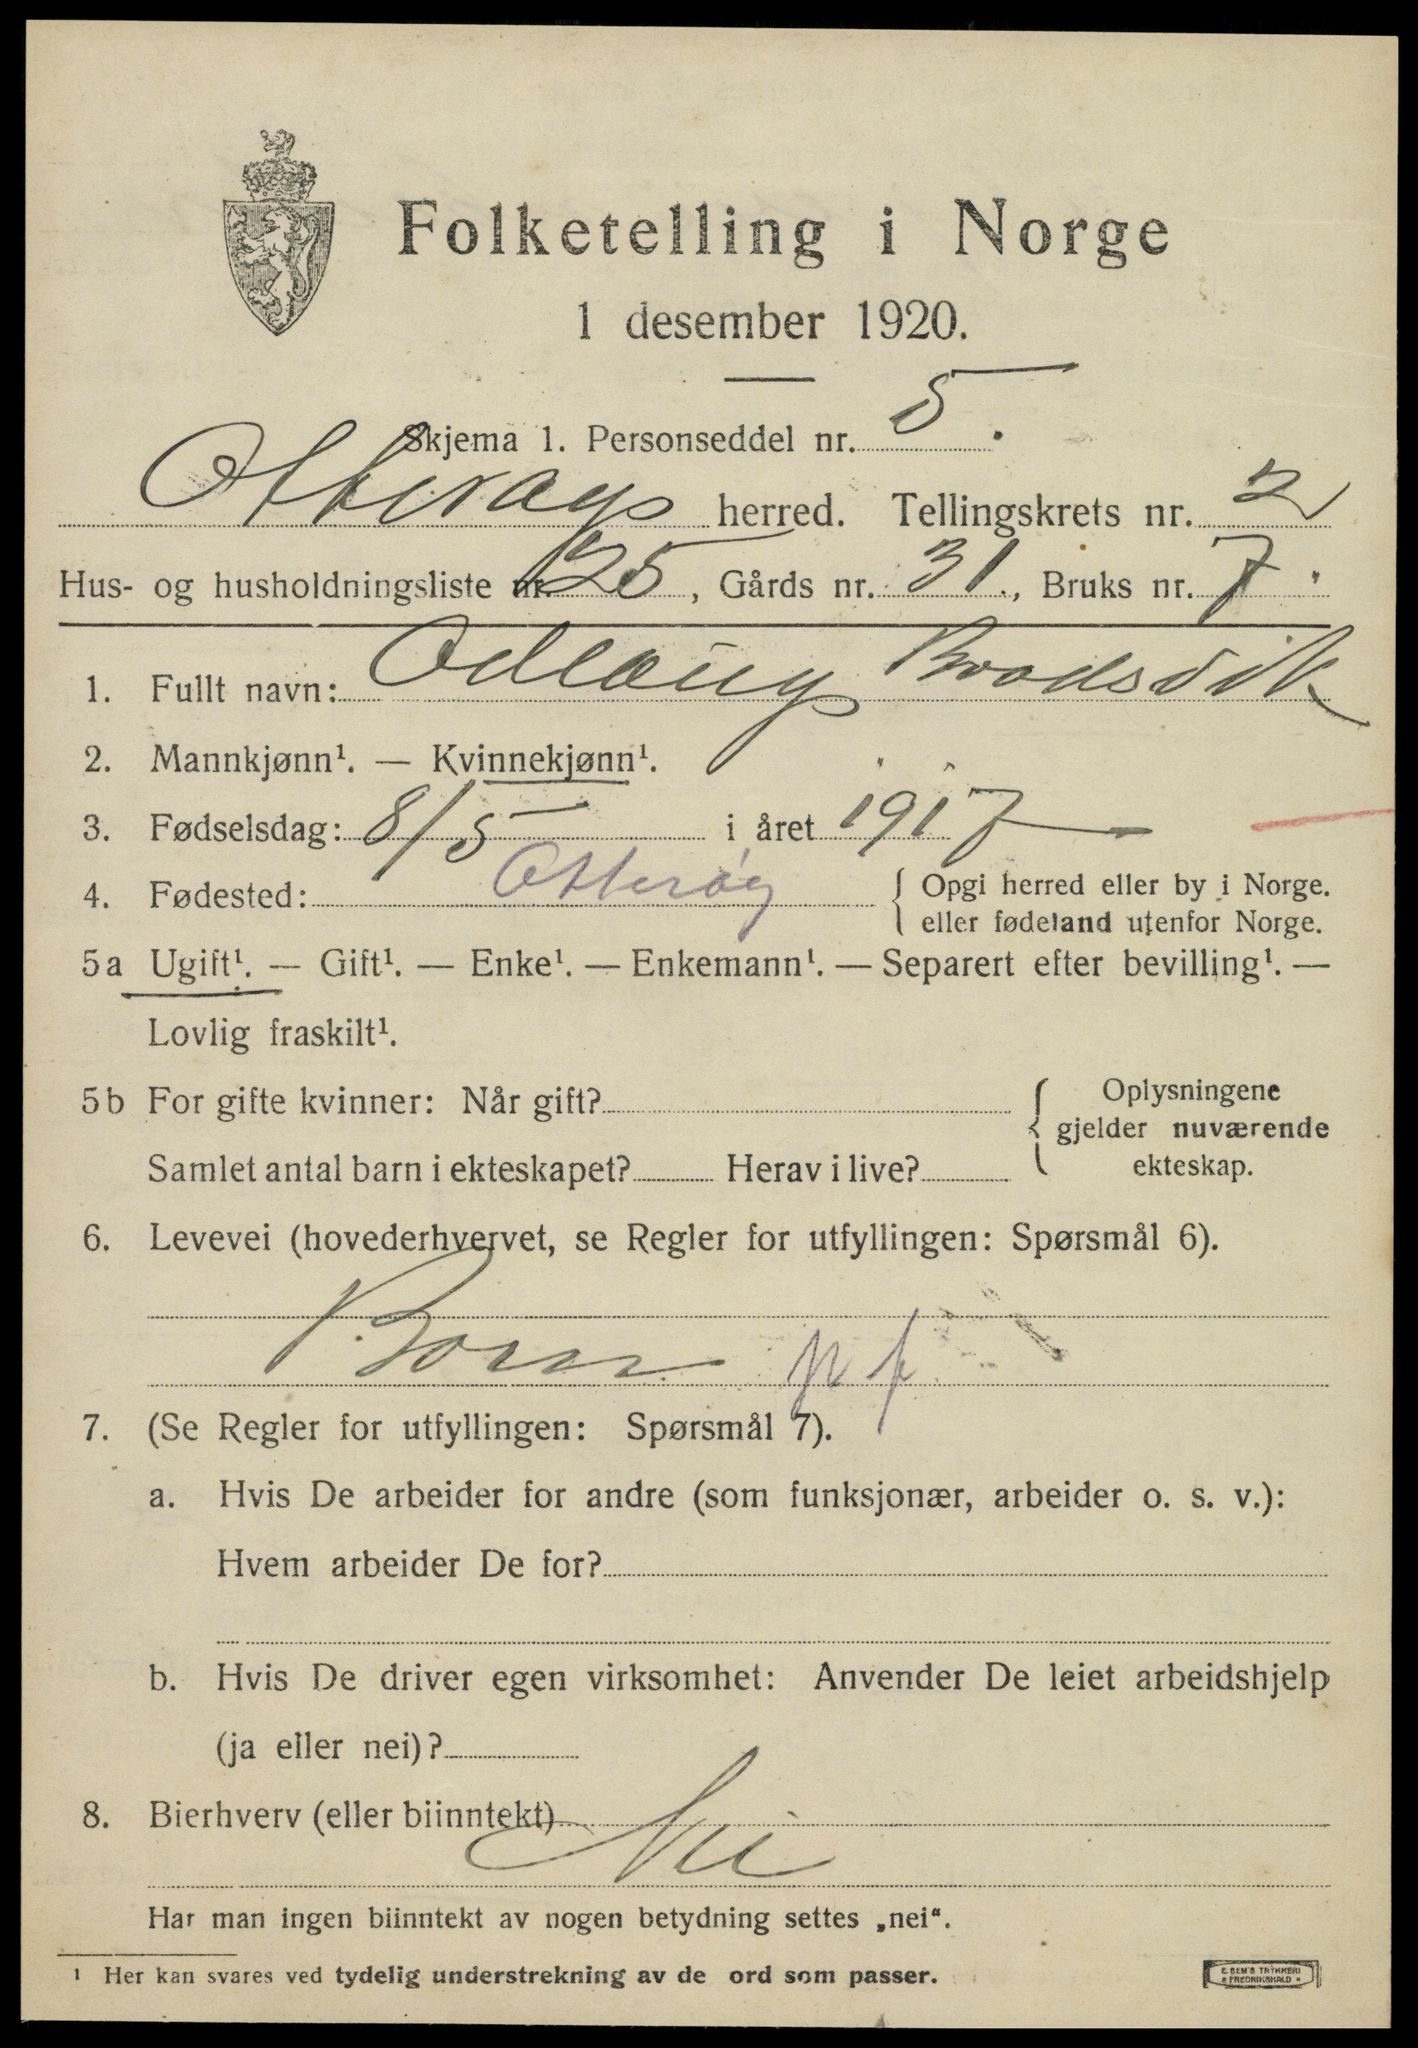 Folketelling i Norge
1 desember 1920.
Skjema 1. Personseddel nr. 5.
Otterøy herred. Tellingskrets nr. 2
Hus- og husholdningsliste nr. 25, Gårds nr. 31., Bruks nr. 7.
1. Fullt navn: Odlaug
2. Mannkjønn¹. — Kvinnekjønn¹.
3. Fødselsdag: 8/5 i året 1917
4. Fødested: Otterøy { Opgi herred eller by i Norge.
eller fødeland utenfor Norge.
5a Ugift¹. — Gift¹. — Enke¹. — Enkemann¹. — Separert efter bevilling¹. —
Lovlig fraskilt¹.
5b For gifte kvinner: Når gift? { Oplysningene
gjelder nuværende
Samlet antal barn i ekteskapet? Herav i live? ekteskap.
6. Levevei (hovederhvervet, se Regler for utfyllingen: Spørsmål 6).
Barn
7. (Se Regler for utfyllingen: Spørsmål 7).
a. Hvis De arbeider for andre (som funksjonær, arbeider o. s. v.):
Hvem arbeider De for?
b. Hvis De driver egen virksomhet: Anvender De leiet arbeidshjelp
(ja eller nei)?
8. Bierhverv (eller biinntekt)
Nei
Har man ingen biinntekt av nogen betydning settes „nei“.
¹ Her kan svares ved tydelig understrekning av de ord som passer.
E. SEM'S TRYKKERI
FREDRIKSHALD